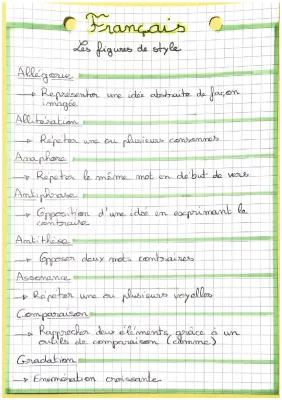 Français
Les figures de style
Allégorie
→ Représenter une idée abstraite de façon
imagée
Allitération
→ Répéter une ou plusieurs consonnes
Anaphore
→ Répéter le même mot en début de vers
Antiphrase
→ Opposition d'une idée en exprimant la
contraire
Antithèse
→ Opposer deux mots contraires
Assonance
→ Répéter une ou plusieurs voyelles
Comparaison
→ Rapprocher deux éléments grâce à un
outils de comparaison (comme)
Gradation
→ Enumération croissante